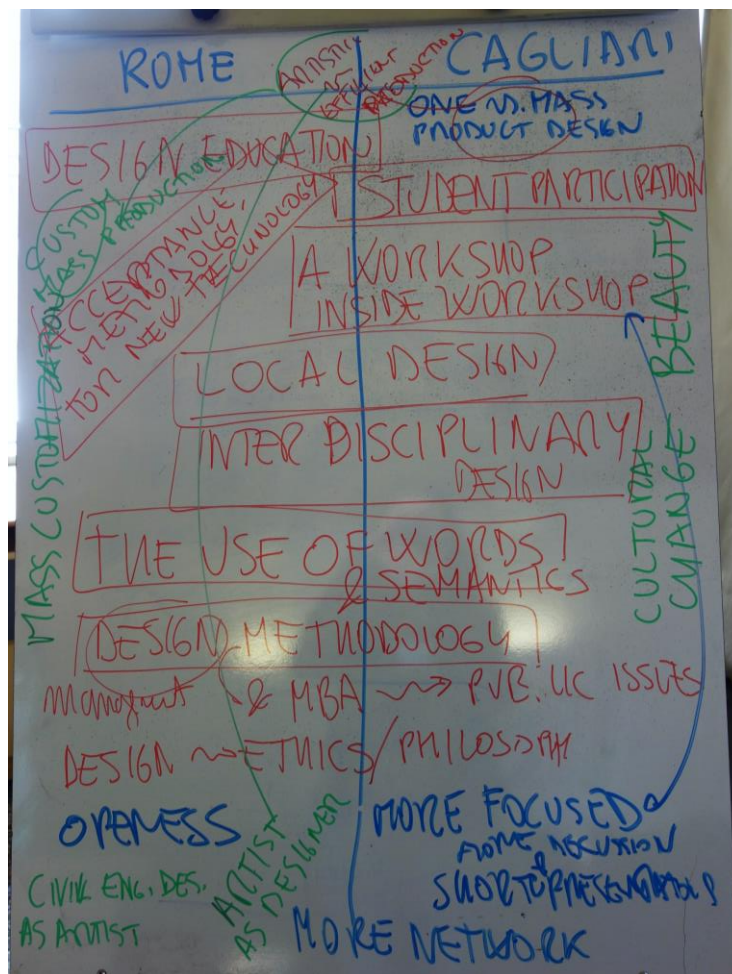 ROME
CAGLIARI
ARTISTIC
VS
EFFICIENT
PRODUCTION
ONE VS. MASS
PRODUCT DESIGN
DESIGN EDUCATION
STUDENT PARTICIPATION
CUSTOM
MASS PRODUCTION
MASS CUSTOMIZATION
ACCEPTANCE,
METHODOLOGY,
FOR NEW TECHNOLOGY
A WORKSHOP
INSIDE WORKSHOP
BEAUTY
LOCAL DESIGN
INTER DISCIPLINARY
DESIGN
CULTURAL
CHANGE
THE USE OF WORDS
& SEMANTICS
DESIGN METHODOLOGY
& MBA PUB.LIC ISSUES
DESIGN ETHICS/PHILOSOPHY
OPENESS
MORE FOCUSED
MORE
&
ARTIST
AS DESIGNER
CIVIL ENG. DES.
AS ARTIST
MORE NETWORK